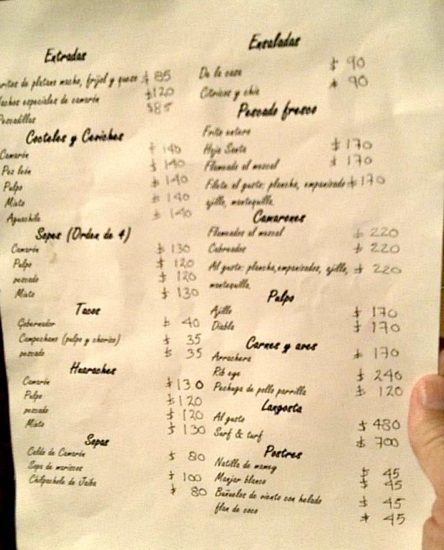 Entradas
de platano macho, frijol y queso $ 85
especiales de camarón $120
Pescadillas $85
Cocteles y Ceviches
Camarón $ 140
Pez león $ 140
Pulpo $ 140
Mixto $ 140
Aguachile $ 140
Sopes (Orden de 4)
Camarón $ 130
Pulpo $ 120
pescado $ 120
Mixto $ 130
Tacos
Gobernador $ 40
Campechano (pulpo y chorizo) $ 35
pescado $ 35
Huaraches
Camarón $130
Pulpo $120
pescado $120
Mixto $ 130
Sopas
Caldo de Camarón $ 80
Sopa de mariscos $ 100
Chilpachole de Jaiba $ 80
Ensaladas
De la casa $ 90
Citricos y chia $ 90
Pescado fresco
Frito entero
Hoja Santa $ 170
Flameado al mezcal $ 170
Filete al gusto: plancha, empanizado $ 170
ajillo, mantequilla.
Camarones
Flameados al mezcal $ 220
Cabreados $ 220
Al gusto: plancha, empanizados, ajillo, $ 220
mantequilla.
Pulpo
Ajillo $ 170
Diabla $ 170
Carnes y aves
Arrachera $ 170
Rib eye $ 240
Pechuga de pollo parrilla $ 120
Langosta
Al gusto $ 480
Surf & turf $ 700
Postres
Natilla de mamey $ 45
Manjar blanco $ 45
Buñuelos de viento con helado $ 45
flan de coco $ 45